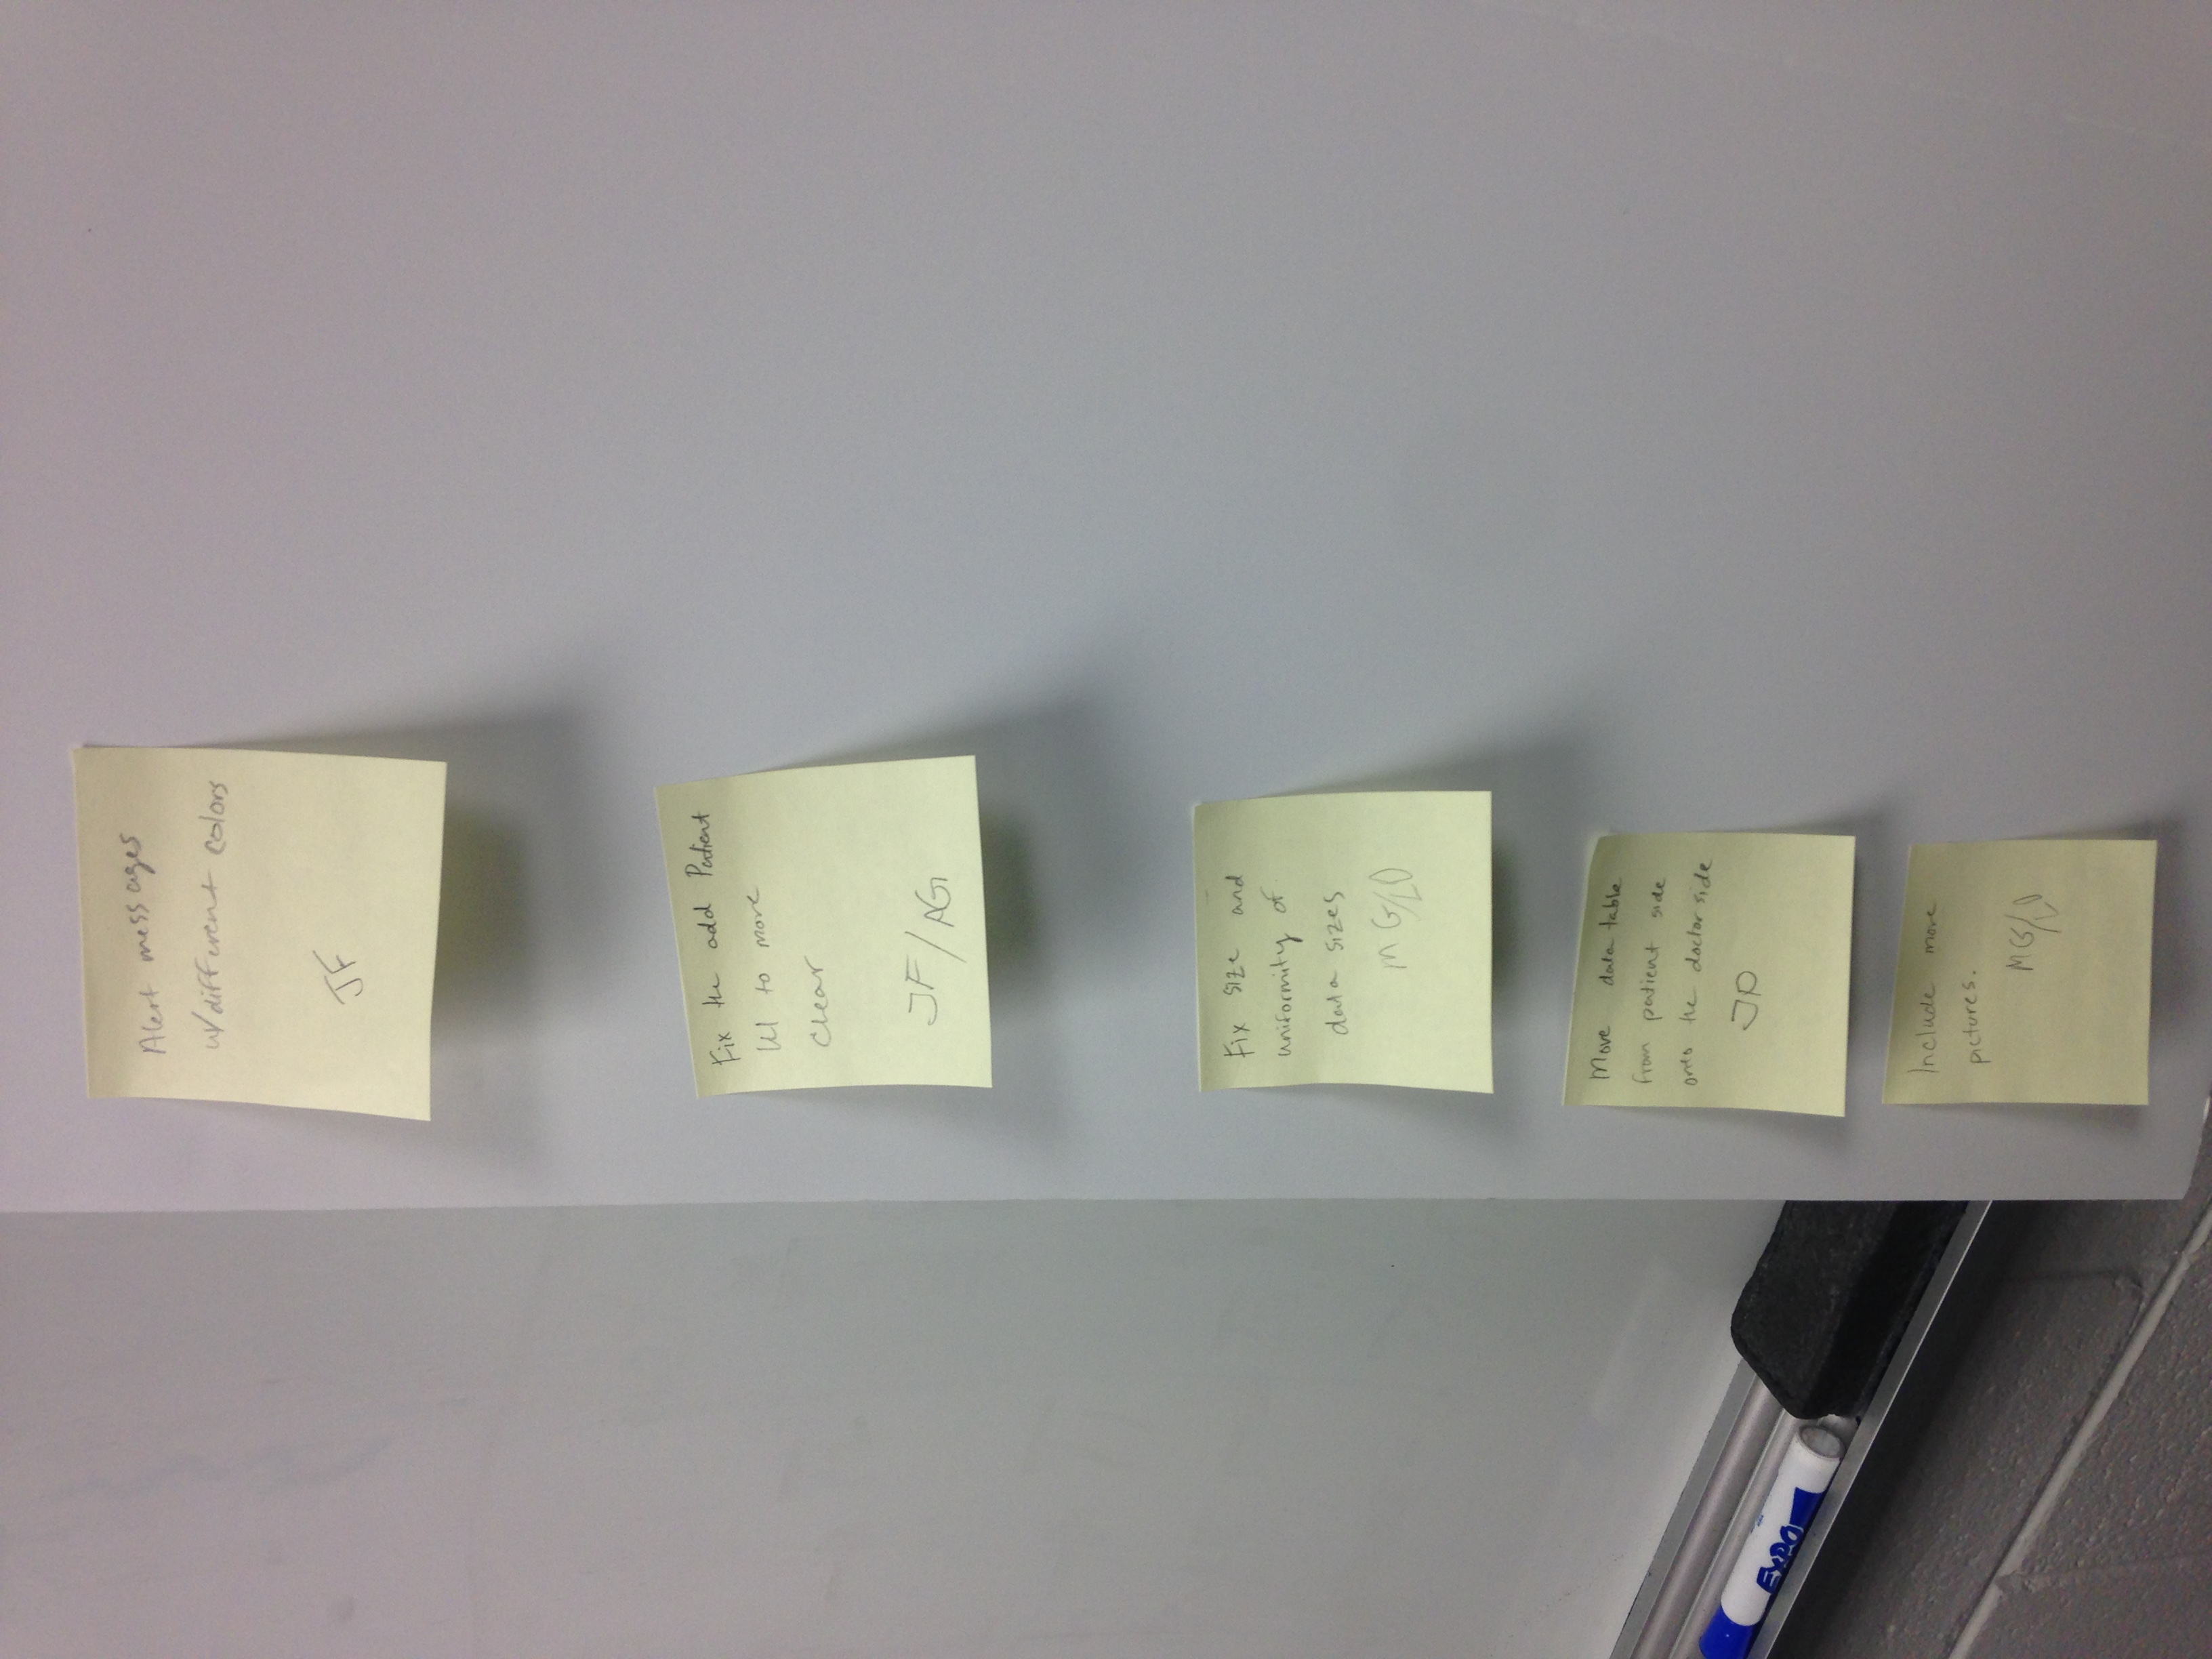 Alert messages
w/different colors
JF
Fix the add Patient
UI to more
clear
JF/AG
Fix size and
uniformity of
data sizes
MG/LD
Move data table
from patient side
onto the doctor side
JD
Include more
pictures.
MG/LD
EXPO